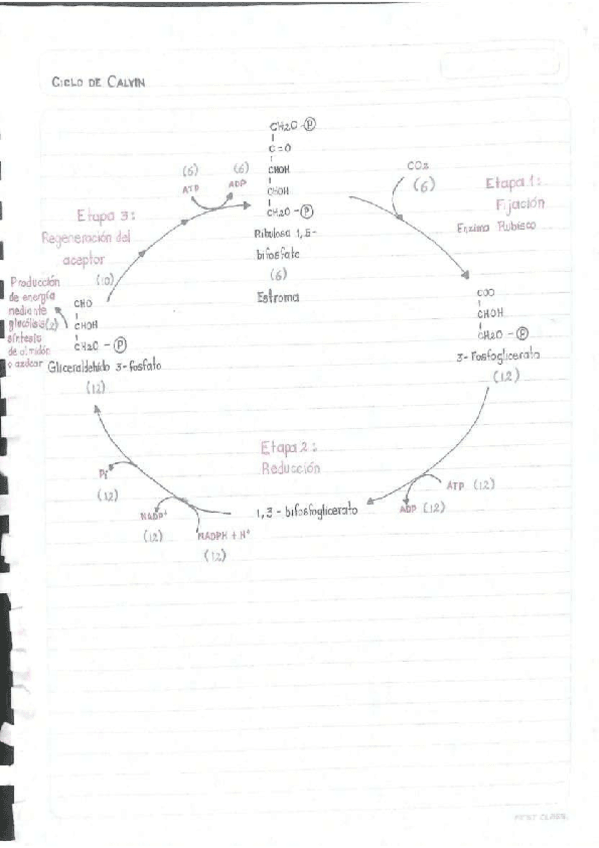 CICLO DE CALVIN
CH2O-Ⓟ
C=O
CHOH
CHOH
CH2O-Ⓟ
Ribulosa 1,5-
bifosfato
(6)
Estroma
CO2
(6)
Etapa 1:
Fijación
Enzima Rubisco
COO
CHOH
CH2O-Ⓟ
3-Fosfoglicerato
(12)
ATP (12)
ADP (12)
Etapa 2:
Reducción
1,3-bifosfoglicerato
NADPH + H+
(12)
NADP+
(12)
Pi
(12)
CHO
CHOH
CH2O-Ⓟ
Gliceraldehído 3-fosfato
(12)
Producción
de energía
mediante
glucólisis (2)
síntesis
de almidón
o azúcar
(10)
Etapa 3:
Regeneración del
aceptor
(6)
ATP
(6)
ADP
FIRST CLASS